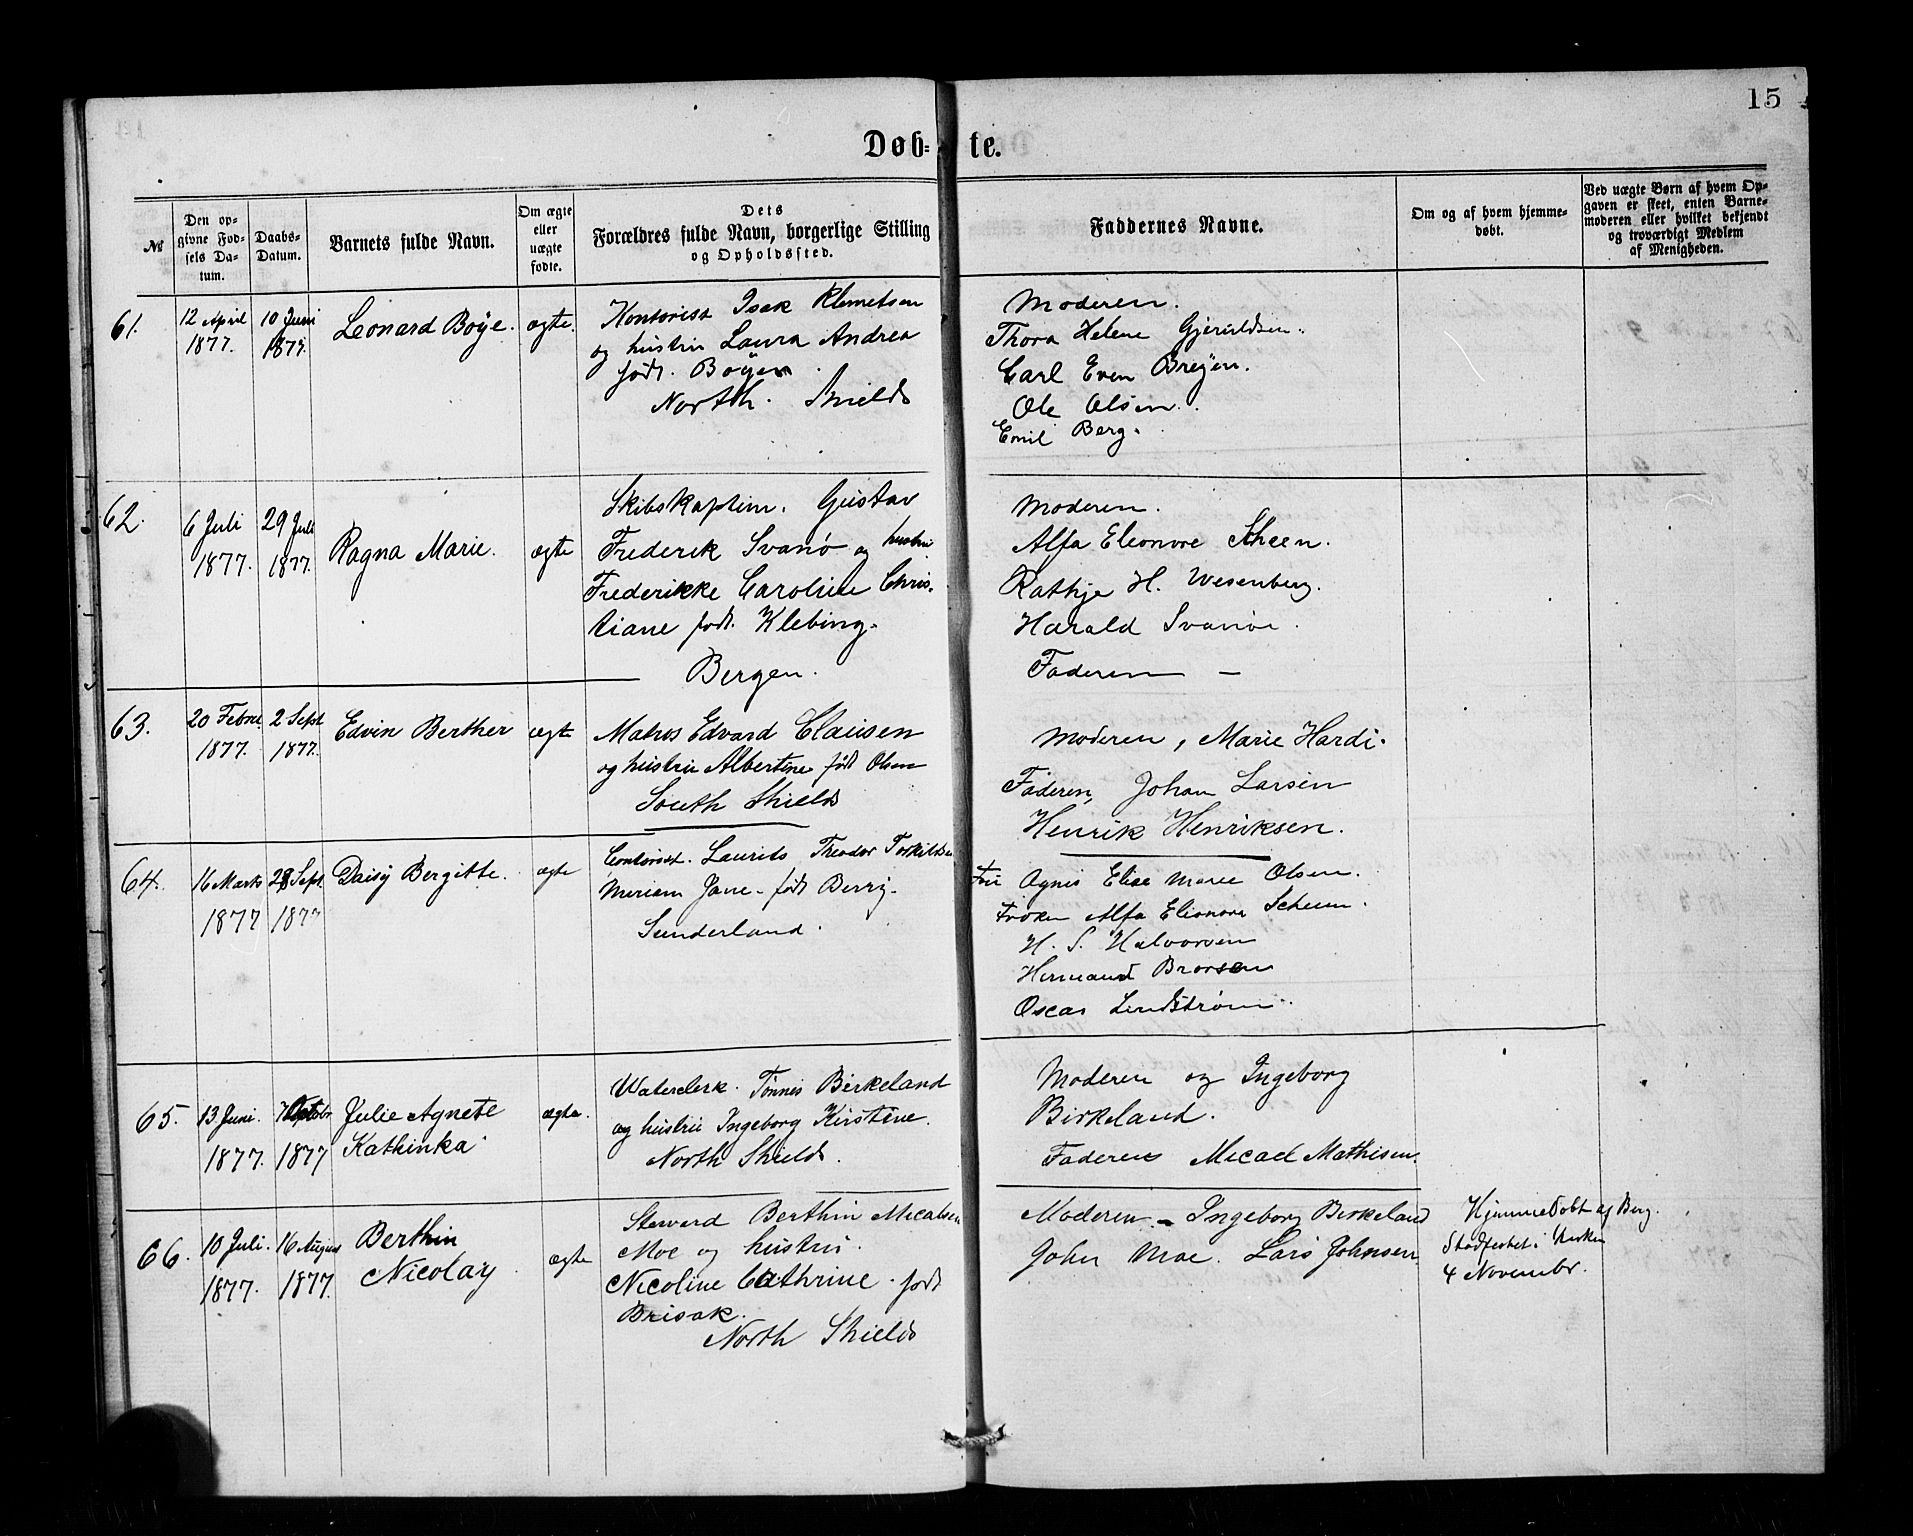 15
Døb= te.
№
Den op=
givne Fød=
sels Da=
tum.
Daabs=
Datum.
Barnets fulde Navn.
Om ægte
eller
uægte
fødte.
Dets
Forældres fulde Navn, borgerlige Stilling
og Opholdssted.
Faddernes Navne.
Om og af hvem hjemme=
døbt.
Ved uægte Børn af hvem Op=
gaven er skeet, enten Barne=
moderen eller hvilket bekjendt
og troværdigt Medlem
af Menigheden.
61.
12 April
1877.
10 Juni
1877.
Leonard Boye.
ægte.
Kontorist Isak Klemetsen
og hustru Laura Andrea
født. Boyen
North. Shields
Moderen.
Thora Helene Gjeruldsen.
Carl Even Breyen.
Ole Olsen.
Emil Berg.
62.
6 Juli
1877.
29 Juli
1877.
Ragna Marie.
ægte
Skibskaptein. Gustav
Frederik Svanø og hustru
Frederikke Caroline Chris.
tiane født. Klebing.
Bergen.
Moderen.
Alfa Eleonore Scheen.
Rathje H. Wesenberg.
Harald Svanøe.
Faderen —
63.
20 Febru.
1877.
2 Sept
1877.
Edvin Berther
ægte
Matros Edvard Clausen
og hustru Albertine født Olsen
South Shields
Moderen, Marie Hardi.
Faderen, Johan Larsen
Henrik Henriksen.
64.
16 Marts
1877
28 Sept.
1877
Daisy Bergitte.
ægte
Contorist. Laurits Theodor Torkildsen
Meriam Jane. født Berry.
Sunderland.
Fru Agnis Elise Marie Olsen.
Frøken Alfa Elionora Scheen.
H. S. Halvorsen
Hermand Brorsen
Oscar Lindstrøm.
65.
13 Juni.
1877.
7 Octobr
1877
Julie Agnete
Kathinka
ægte.
Waterclerk. Tønnes Birkeland
og hustru Ingeborg Kirstine.
North Shields.
Moderen og Ingeborg
Birkeland.
Faderen Micael Mathisen.
66.
10 Juli.
1877.
16 August
1877.
Berthin
Nicolay
ægte
Steward Berthin Micalsen
Moe og hustru.
Nicoline Cathrine. født
Brisak.
North Shields
Moderen. - Ingeborg Birkeland
John Moe. Lars Johnsen
Hjemmedøbt af Berg.
Stadfestet i Kirken
4 Novembr.